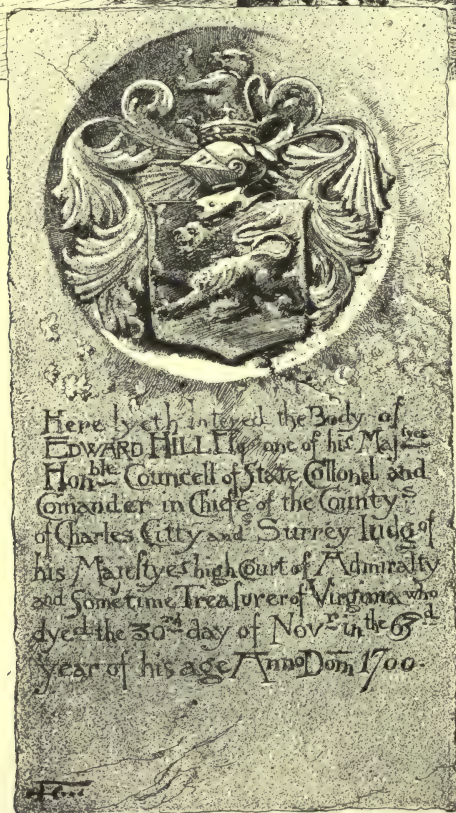 Here lyeth Intered the Body of
EDWARD HILL Esqr one of his Majtyes
Honble Councell of State Collonel and
Comander in Chiefe of the Countys
of Charles Citty and Surrey Iudg of
his Majestyes high Court of Admiralty
and Sometime Treasurer of Virginia who
dyed the 30rd day of Novr in the 63rd
year of his age Anno Dom 1700.